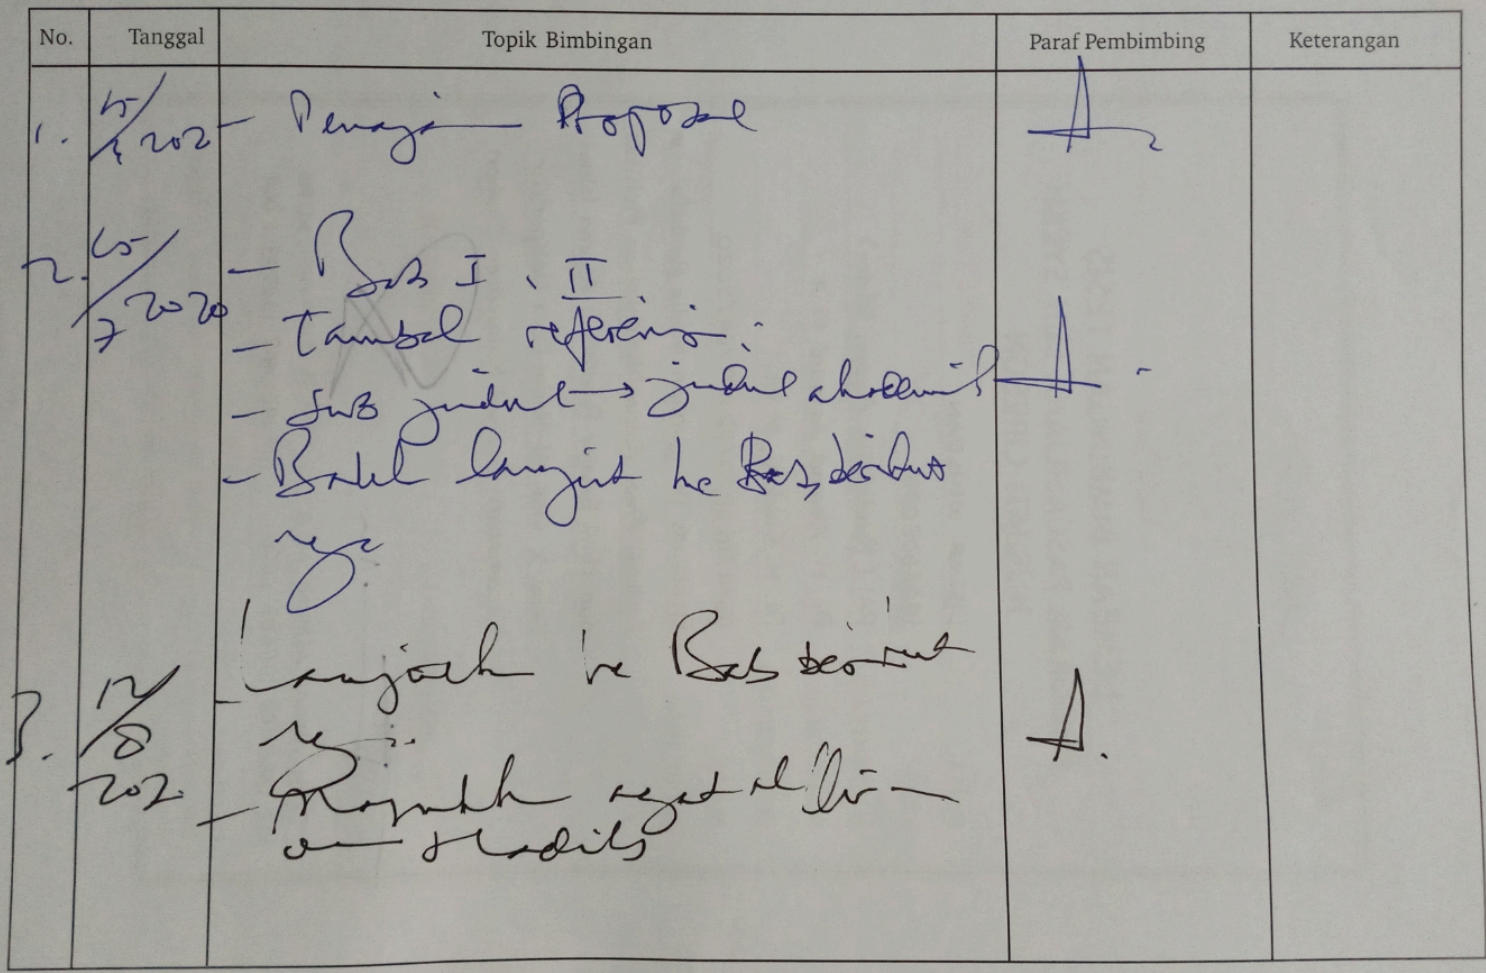 No. Tanggal Topik Bimbingan Paraf Pembimbing Keterangan
1. 15/ 202 - Proposal
2. 15/7 2020 - Bab I, II
- Tambah referensi.
- Sub judul → judul akademis
- lanjut ke Bab berikut
nya
3. 12/8 202 - ke Bab berikut
nya
- ayat al
Hadits